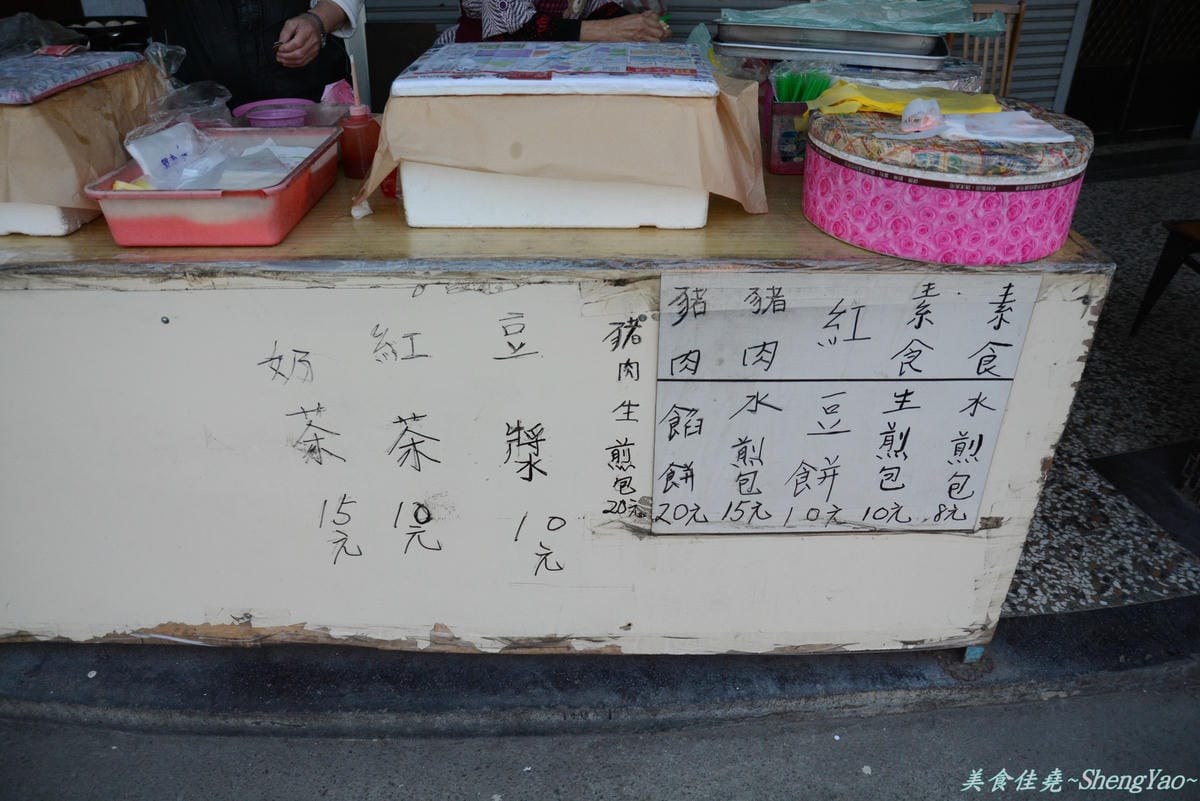 素食水煎包8元
素食生煎包10元
紅豆餅10元
豬肉水煎包15元
豬肉餡餅20元
豬肉生煎包20元
豆漿10元
紅茶10元
奶茶15元
美食佳堯~ShengYao~